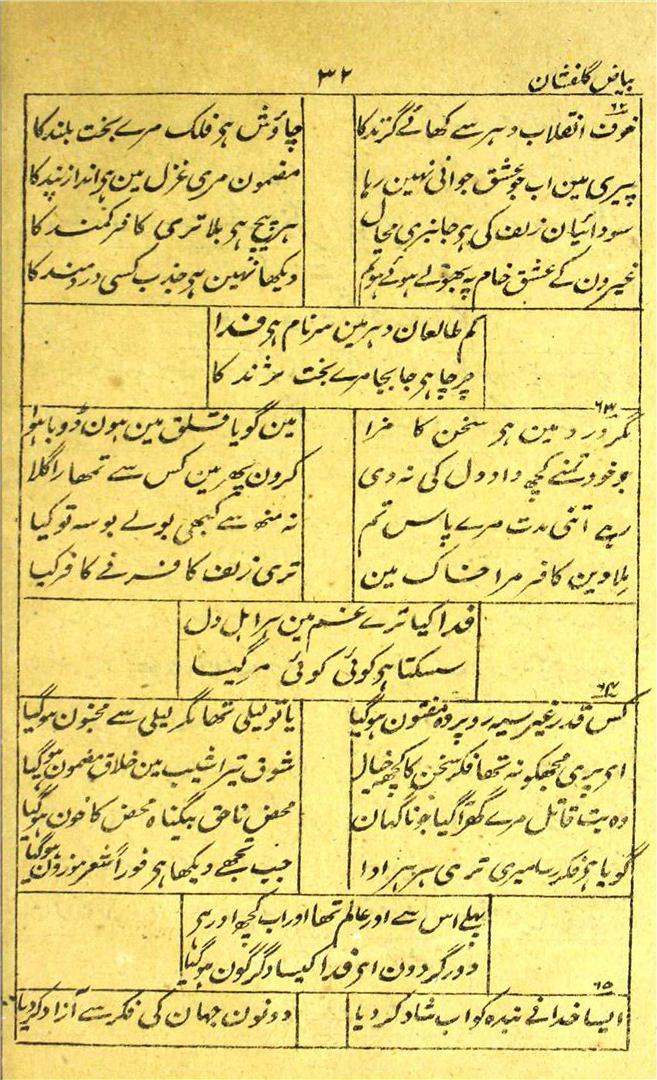 بیاض گلفشان
۳۲
۶۲
خوف انقلاب دہر سے کھائے گزند کا
چاؤش ہی فلک مرے بخت بلند کا
پیری مین اب جو عشق جوانی نہین رہا
مضمون مری غزل مین ہی انداز پند کا
سودائیان زلف کی ہی جانبری محال
ہر پیچ ہی بلا تری کافر کمند کا
غیرون کے عشق خام پہ بھولے ہوئے ہو تم
دیکھا نہین ہی جذب کسی دردمند کا
کم طالعان دہر مین سرنام ہی فدا
چرچا ہی جابجا مرے بخت نژند کا
۶۳
مگر درد مین ہی سخن کا مزا
مین گویا قلق مین ہون ڈوبا ہوا
جو خود تمنے کچھ داد دل کی نہ دی
کرون پھر مین کس سے تمھارا گلا
رہے اتنی مدت مرے پاس تم
نہ منھ سے کبھی بولے بوسہ تو کیا
ملا دین کافر مرا خاک مین
تری زلف کافر نے کافر کیا
فدا کیا ترے غم مین ہر اہل دل
سسکتا ہی کوئی کوئی مر گیا
۶۴
کس قدر غیر سیہ رو پر وہ مفتون ہوگیا
یا تو لیلی تھا مگر لیلی سے مجنون ہوگیا
ای پری مجھکو نہ تھا فکر سخن کا کچھ خیال
شوق تیرا شیب مین خلاق مضمون ہوگیا
وہ بت قاتل مرے گھر آگیا جو ناگہان
محض ناحق بیگناہ محض کا خون ہوگیا
گویا ہی فکر رسا میری تری ہر ہر ادا
جب تجھے دیکھا ہی فوراً شعر موزون ہوگیا
پہلے اس سے اور عالم تھا اور اب کچھ اور ہی
دور گردون ای فدا کیسا دگرگون ہوگیا
۶۵
ایسا خدا نے بندہ کو اب شاد کر دیا
دونون جہان کی فکر سے آزاد کر دیا